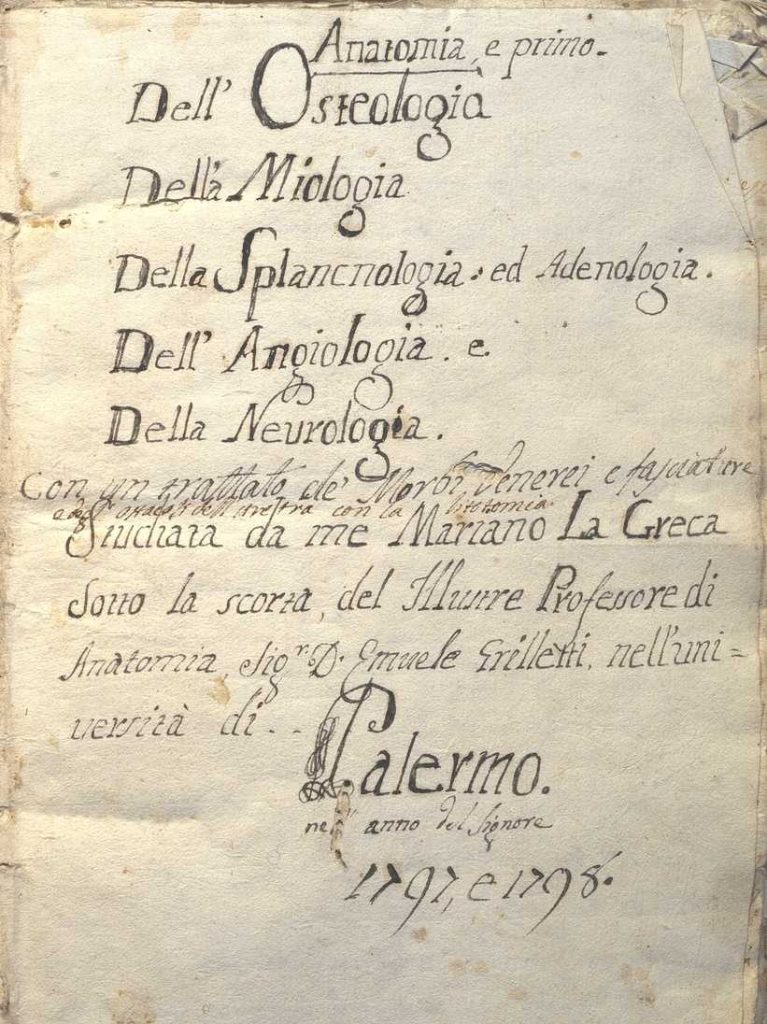 Anatomia, e primo.
Dell' Osteologia
Della Miologia
Della Splancnologia. ed Adenologia.
Dell' Angiologia. e
Della Neurologia.
Con un trattato de' Morbi Venerei e fasciature
con la litotomia.
Studiata da me Mariano La Greca
Sotto la scorta, del Illustre Professore di
Anatomia, Sig.r D. Emuele Grilletti, nell'uni=
versità di..
Palermo.
nell' anno del Signore
1797, e 1798.